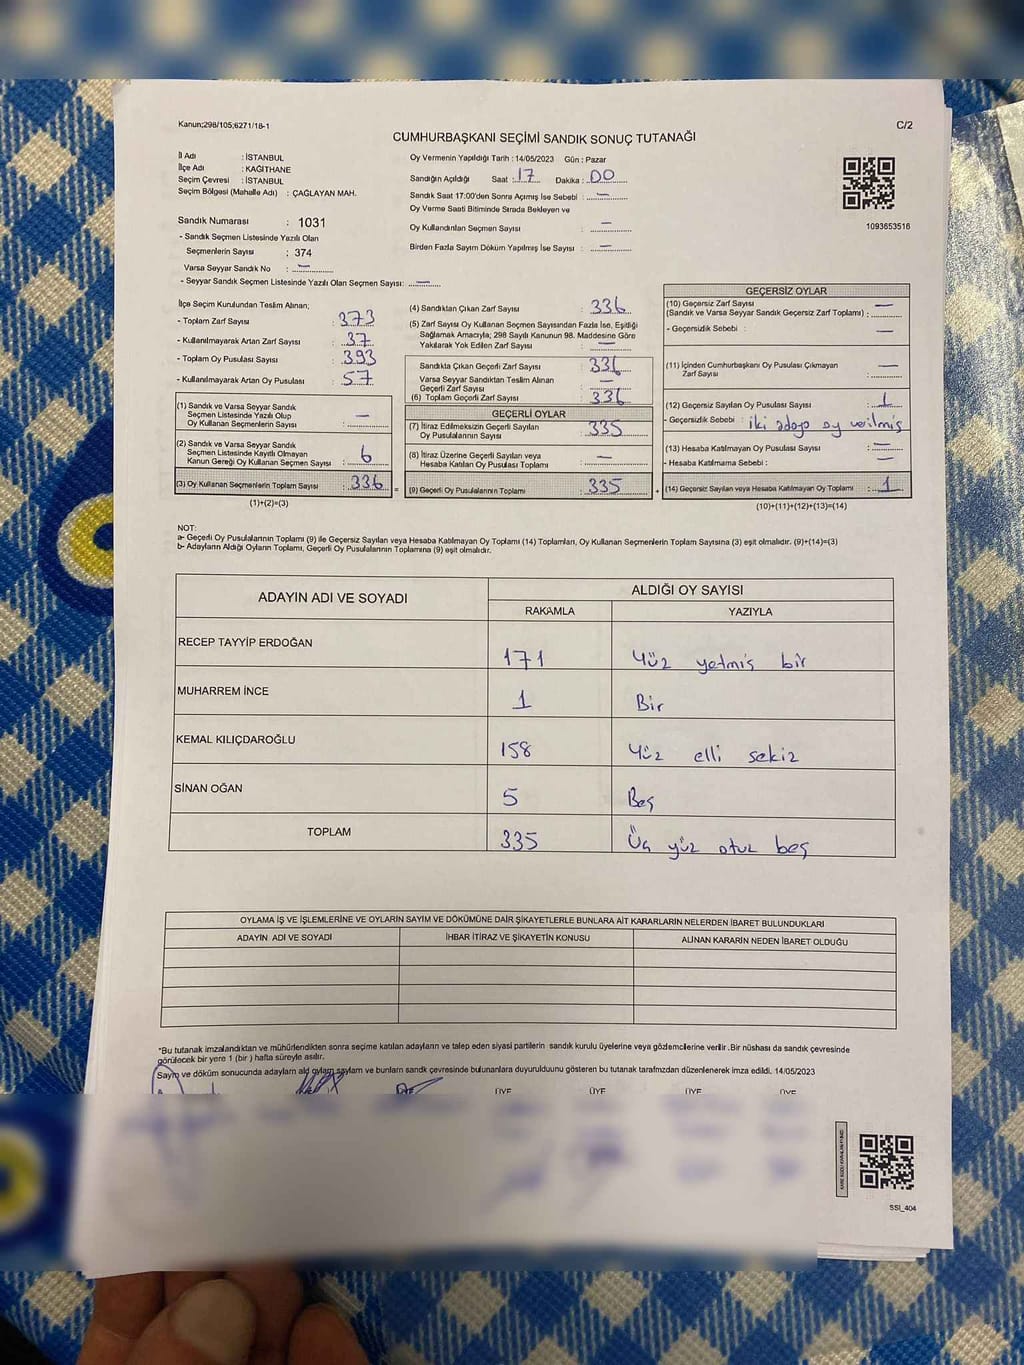 Kanun;298/105;6271/18-1
CUMHURBAŞKANI SEÇİMİ SANDIK SONUÇ TUTANAĞI
C/2
İl Adı : İSTANBUL
İlçe Adı : KAĞITHANE
Seçim Çevresi : İSTANBUL
Seçim Bölgesi (Mahalle Adı) : ÇAĞLAYAN MAH.
Sandık Numarası : 1031
- Sandık Seçmen Listesinde Yazılı Olan
Seçmenlerin Sayısı : 374
Varsa Seyyar Sandık No : —
- Seyyar Sandık Seçmen Listesinde Yazılı Olan Seçmen Sayısı: —
Oy Vermenin Yapıldığı Tarih : 14/05/2023 Gün : Pazar
Sandığın Açıldığı Saat : 17 Dakika : 00
Sandık Saat 17:00'den Sonra Açımış İse Sebebi : —
Oy Verme Saati Bitiminde Sırada Bekleyen ve
Oy Kullandırılan Seçmen Sayısı : —
Birden Fazla Sayım Döküm Yapılmış İse Sayısı : —
1093653516
İlçe Seçim Kurulundan Teslim Alınan;
- Toplam Zarf Sayısı : 373
- Kullanılmayarak Artan Zarf Sayısı : 37
- Toplam Oy Pusulası Sayısı : 393
- Kullanılmayarak Artan Oy Pusulası : 57
(1) Sandık ve Varsa Seyyar Sandık
Seçmen Listesinde Yazılı Olup
Oy Kullanan Seçmenlerin Sayısı : —
(2) Sandık ve Varsa Seyyar Sandık
Seçmen Listesinde Kayıtlı Olmayan
Kanun Gereği Oy Kullanan Seçmen Sayısı : 6
(3) Oy Kullanan Seçmenlerin Toplam Sayısı : 336
(1)+(2)=(3)
(4) Sandıktan Çıkan Zarf Sayısı : 336
(5) Zarf Sayısı Oy Kullanan Seçmen Sayısından Fazla İse, Eşitliği
Sağlamak Amacıyla; 298 Sayılı Kanunun 98. Maddesine Göre
Yakılarak Yok Edilen Zarf Sayısı : —
Sandıkta Çıkan Geçerli Zarf Sayısı : 336
Varsa Seyyar Sandıktan Teslim Alınan
Geçerli Zarf Sayısı : —
(6) Toplam Geçerli Zarf Sayısı : 336
GEÇERLİ OYLAR
(7) İtiraz Edilmeksizin Geçerli Sayılan
Oy Pusulalarının Sayısı : 335
(8) İtiraz Üzerine Geçerli Sayılan veya
Hesaba Katılan Oy Pusulası Toplamı : —
= (9) Geçerli Oy Pusulalarının Toplamı : 335
GEÇERSİZ OYLAR
(10) Geçersiz Zarf Sayısı
(Sandık ve Varsa Seyyar Sandık Geçersiz Zarf Toplamı) : —
- Geçersizlik Sebebi : —
(11) İçinden Cumhurbaşkanı Oy Pusulası Çıkmayan
Zarf Sayısı : —
(12) Geçersiz Sayılan Oy Pusulası Sayısı : 1
- Geçersizlik Sebebi : iki adaya oy verilmiş
(13) Hesaba Katılmayan Oy Pusulası Sayısı : —
- Hesaba Katılmama Sebebi : —
+ (14) Geçersiz Sayılan veya Hesaba Katılmayan Oy Toplamı : 1
(10)+(11)+(12)+(13)=(14)
NOT:
a- Geçerli Oy Pusulalarının Toplamı (9) ile Geçersiz Sayılan veya Hesaba Katılmayan Oy Toplamı (14) Toplamları, Oy Kullanan Seçmenlerin Toplam Sayısına (3) eşit olmalıdır. (9)+(14)=(3)
b- Adayların Aldığı Oyların Toplamı, Geçerli Oy Pusulalarının Toplamına (9) eşit olmalıdır.
ADAYIN ADI VE SOYADI
ALDIĞI OY SAYISI
RAKAMLA YAZIYLA
RECEP TAYYİP ERDOĞAN 171 Yüz yetmiş bir
MUHARREM İNCE 1 Bir
KEMAL KILIÇDAROĞLU 158 Yüz elli sekiz
SİNAN OĞAN 5 Beş
TOPLAM 335 Üç yüz otuz beş
OYLAMA İŞ VE İŞLEMLERİNE VE OYLARIN SAYIM VE DÖKÜMÜNE DAİR ŞİKAYETLERLE BUNLARA AİT KARARLARIN NELERDEN İBARET BULUNDUKLARI
ADAYIN ADI VE SOYADI İHBAR İTİRAZ VE ŞİKAYETİN KONUSU ALINAN KARARIN NEDEN İBARET OLDUĞU
*Bu tutanak imzalandıktan ve mühürlendikten sonra seçime katılan adayların ve talep eden siyasi partilerin sandık kurulu üyelerine veya gözlemcilerine verilir. Bir nüshası da sandık çevresinde
görülecek bir yere 1 (bir) hafta süreyle asılır.
Sayım ve döküm sonucunda adayların ald oyların sayların ve bunların sandk çevresinde bulunanlara duyurulduunu gösteren bu tutanak tarafımzdan düzenlenerek imza edildi. 14/05/2023
ÜYE ÜYE ÜYE ÜYE
SSI_404